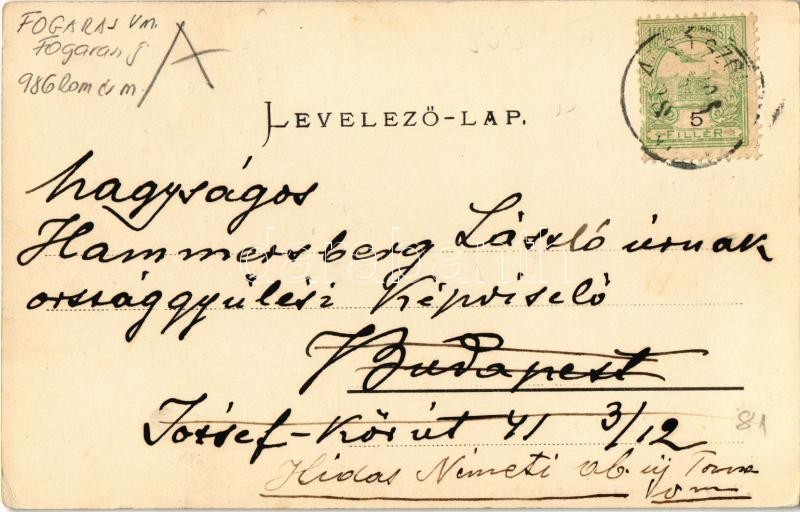 FOGARAS vm.
Fogaras
A
LEVELEZŐ-LAP.
MAGYAR KIR. POSTA
5
FILLÉR
Nagyságos
Hammersberg László úrnak
országgyülési Képviselő
Budapest
József-Körút 41 3/12
Hidas Németi
81
darabanth